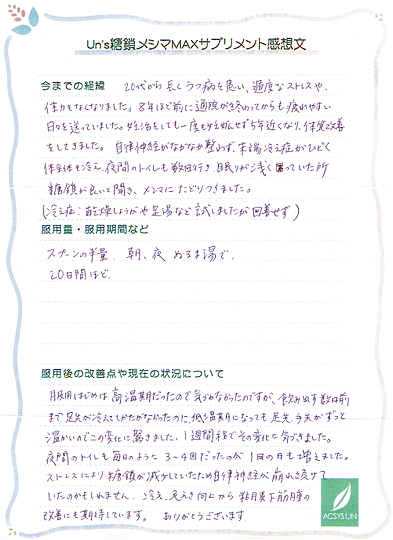 Un's糖鎖メシマMAXサプリメント感想文
今までの経緯 20代から長くうつ病を患い、過度なストレスや、
体力もなくなりました。8年ほど前に通院が終わってからも疲れやすい
日々を送っていました。妊活をしても一度も妊娠せず5年近くなり、体質改善
をしてきました。自律神経がなかなか整わず、末端冷え症がひどく
体全体も冷え、夜間のトイレも数回行き、眠りが浅く困っていた所
糖鎖が良いと聞き、メシマにたどりつきました。
(冷え症:乾燥しょうがや足湯など試しましたが回善せず)
服用量・服用期間など
スプーンの半量 朝、夜 ぬるま湯で、
20日間ほど、
服用後の改善点や現在の状況について
服用しはじめは高温期だったので気づかなかったのですが、飲み出す数日前
まで足先が冷えてしかたがなかったのに、低温期になっても足先、手先がずっと
温かいのでこの変化に驚きました。1週間程でその変化に気づきました。
夜間のトイレも毎日のように3~4回だったのが1回の日も増えました。
ストレスにより糖鎖が減少していたため自律神経が崩れ続けて
いたのかもしれません。冷え、免疫向上から粘膜下筋腫の
改善にも期待しています。 ありがとうございます
ACSYS UN